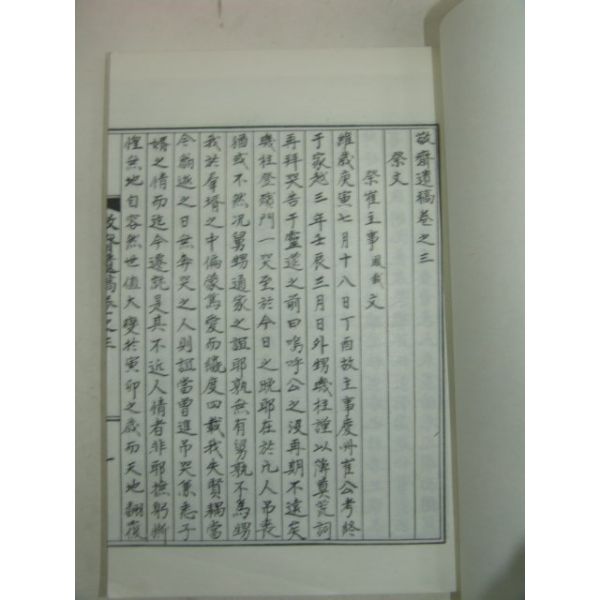 敬齋遺稿卷之三
祭文
祭崔主事鳳載文
維歲庚寅七月十八日丁酉故主事慶州崔公考終
于家越三年壬辰三月日外甥璣柱謹以薄奠荒詞
再拜哭告于靈筵之前曰嗚呼公之沒再期不遠矣
璣柱登殯門一哭至於今日之晚耶在於凡人吊喪
猶或不然况舅甥通家之誼耶孰無有舅孰不爲甥
我於羣壻之中偏蒙篤愛而纔度四載我失賢耦當
令翁逝之日無奔哭之人則誼當曾進吊哭
壻之情而迄今遷託是其不近人情者非耶撫躬慚
惶無地自容然世値大變於寅卯之歲而天地翻覆
敬齋遺稿卷之三
一